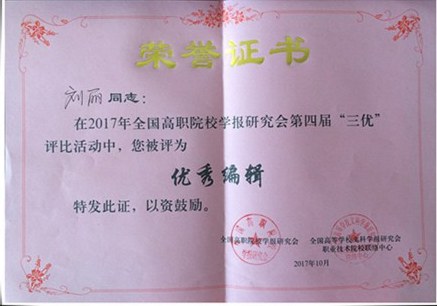 荣誉证书
刘丽 同志：
在2017年全国高职院校学报研究会第四届“三优”
评比活动中，您被评为
优秀编辑
特发此证，以资鼓励。
全国高职院校学报研究会 全国高等学校文科学报研究会
职业技术院校联络中心
2017年10月